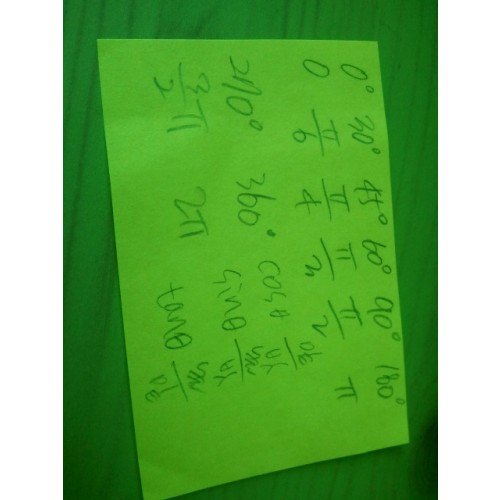 0° 30° 45° 60° 90° 180°
0 π/6 π/4 π/3 π/2 π
270° 360°
3/2 π 2π
cosθ
sinθ
tanθ